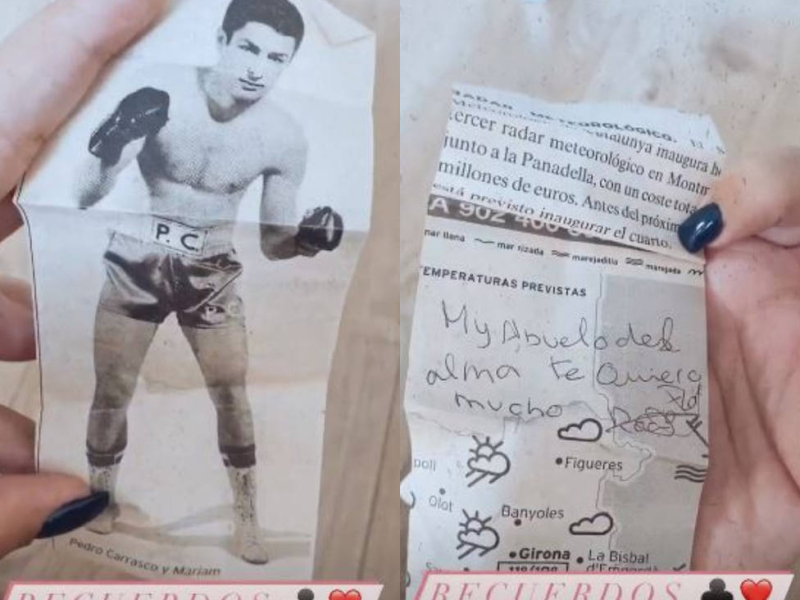 P. C.
P. C.
Pedro Carrasco y Mariam
RECUERDOS
RADAR METEOROLÓGICO. El S
Catalunya inaugura h
tercer radar meteorológico en Montm
junto a la Panadella, con un coste tota
millones de euros. Antes del próxim
está previsto inaugurar el cuarto.
A 902 400
mar llana mar rizada marejadilla marejada
TEMPERATURAS PREVISTAS
My Abuelo del
alma te Quiero
mucho
Figueres
Olot
Banyoles
Girona
La Bisbal
d'Empordà
RECUERDOS